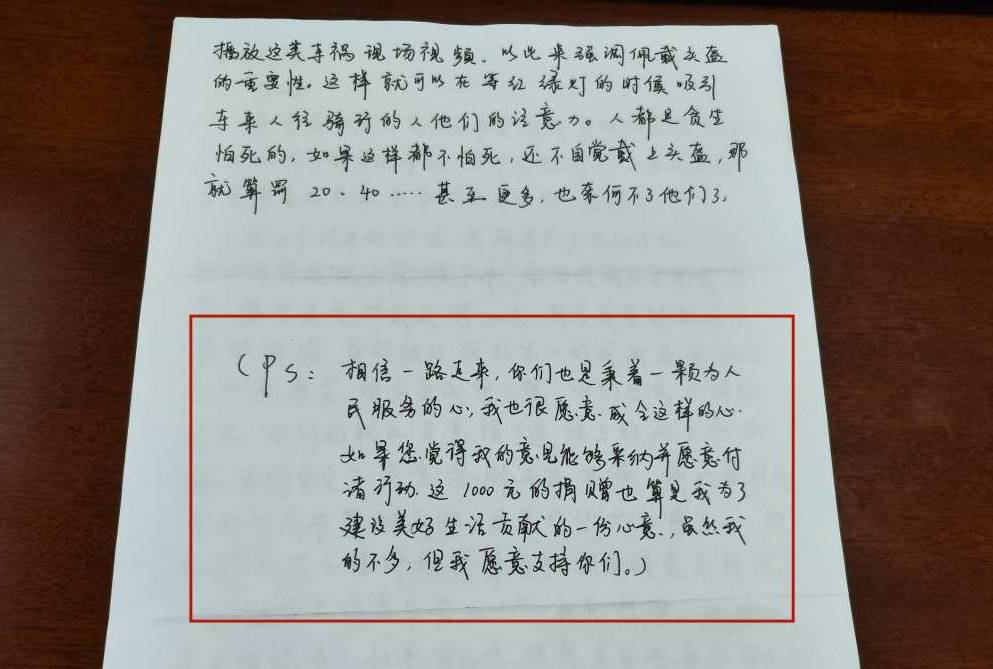 播放这类车祸现场视频，以此来强调佩戴头盔
的重要性。这样就可以在等红绿灯的时候吸引
车来人往骑行的人他们的注意力。人都是贪生
怕死的，如果这样都不怕死，还不自觉戴上头盔，那
就算罚20、40……甚至更多，也奈何不了他们了。
（PS：相信一路走来，你们也是乘着一颗为人
民服务的心，我也很愿意成全这样的心.
如果您觉得我的意见能够采纳并愿意付
诸行动.这1000元的捐赠也算是我为了
建设美好生活贡献的一份心意，虽然我
的不多，但我愿意支持你们。）